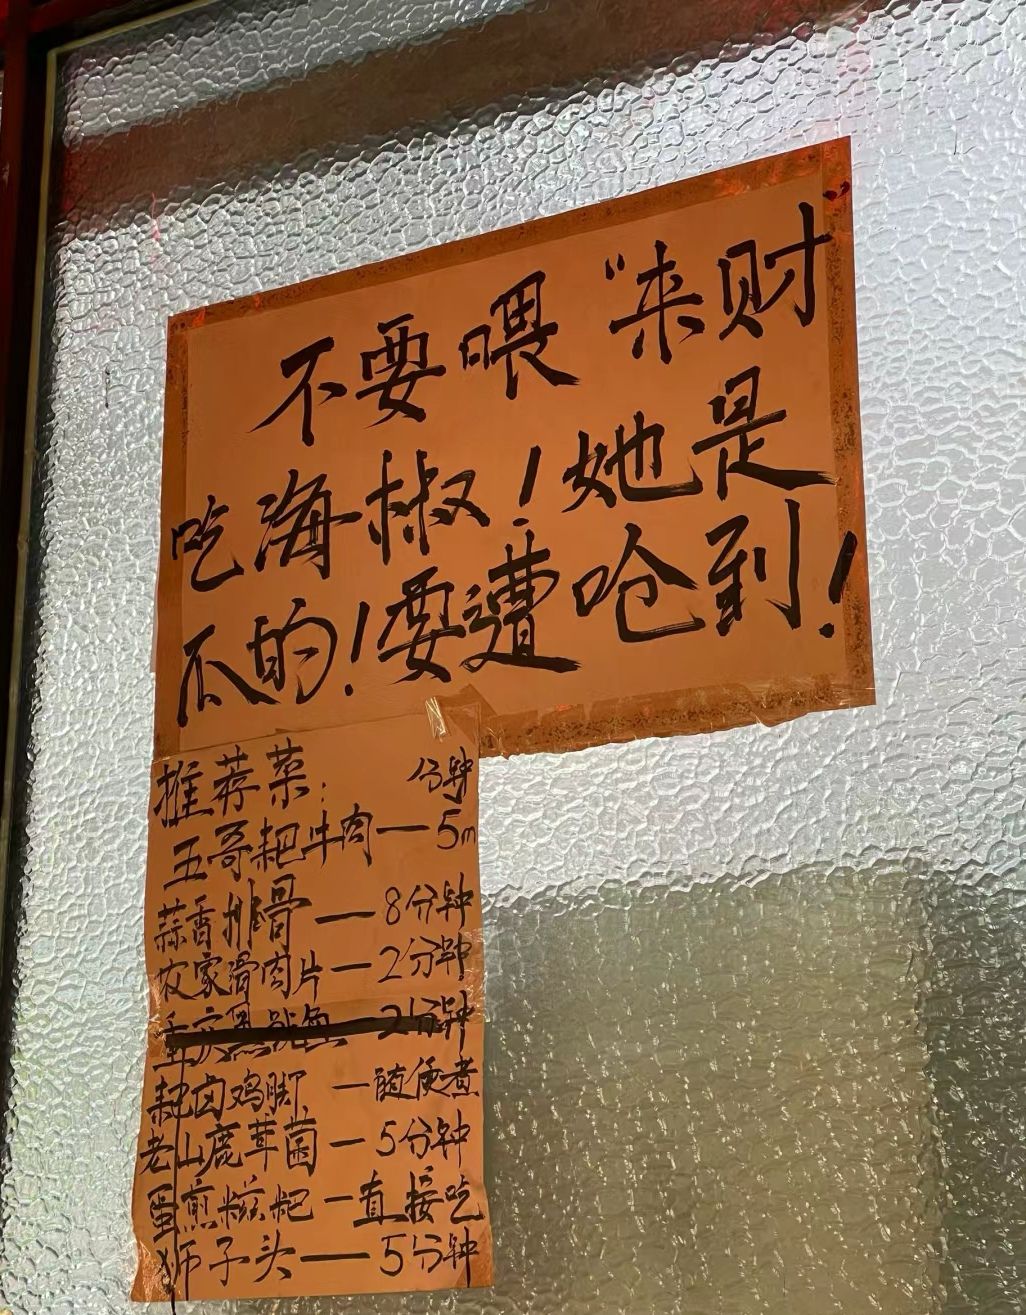 不要喂“来财”
吃海椒！她是
瓜的！要遭呛到！
推荐菜： 分钟
五哥耙牛肉—5m
蒜香排骨—8分钟
农家滑肉片—2分钟
重庆鱼—2分钟
耙卤鸡脚—随便煮
老山鹿茸菌—5分钟
蛋煎糍粑—直接吃
狮子头—5分钟